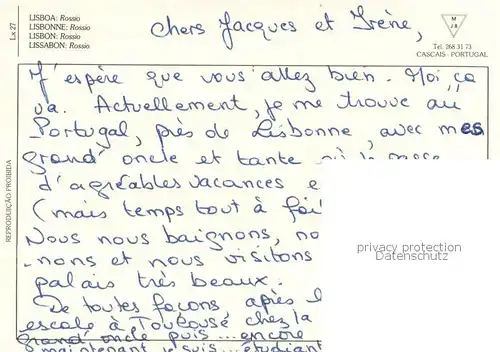 Lx 27
LISBOA: Rossio
LISBONNE: Rossio
LISBON: Rossio
LISSABON: Rossio
MJB
Tel. 268 31 73
CASCAIS - PORTUGAL
REPRODUÇÃO PROIBIDA
Chers Jacques et Irène,
J'espère que vous allez bien. Moi, ça
va. Actuellement, je me trouve au
Portugal, près de Lisbonne, avec mes
grand' oncle et tante où je passe
d'agréables vacances e
(mais temps tout à fai
Nous nous baignons, no
-nons et nous visitons
palais très beaux.
De toutes façons, après l
escale à Toulouse chez la
grand oncle puis... encore
maintenant je suis... étudiant
privacy protection
Datenschutz